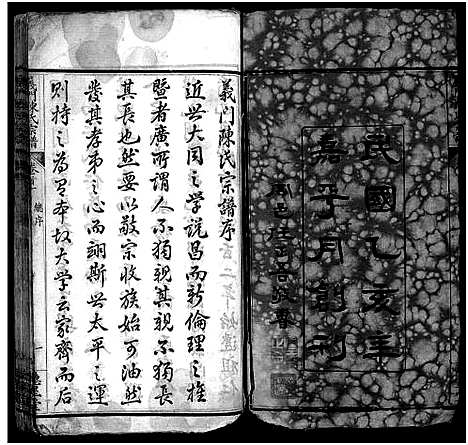 民國乙亥年
嘉平月創刊
義門陳氏宗譜序
近世大同之學說昌而新倫理之推
暨者廣所謂人不獨親其親不獨長
其長也然要以敬宗收族始可油然
發其孝弟之心而翊斯世太平之運
則持之為有本故大學云家齊而后
義門陳氏宗譜
卷首
總序
一